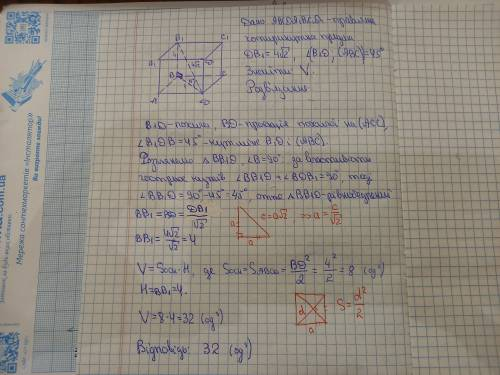 Дано: ABCDA₁B₁C₁D₁ - правильна
чотирикутна призма
DB₁=4√2, ∠(B₁D, (ABC))=45°
Знайти: V.
Розв'язання
A₁ B₁ C₁ D₁
A B C D
4√2
45°
B₁D - похила, BD - проекція похилої на (ABC),
∠B₁DB=45° - кут між B₁D і (ABC).
Розглянемо △BB₁D, ∠B=90°, за властивістю
гострих кутів ∠BB₁D+∠BDB₁=90°, тоді
∠BB₁D=90°-45°=45°, отже △BB₁D - рівнобедрений
BB₁=BD=DB₁/√2
BB₁=4√2/√2=4
a
a
c=a√2 => a=c/√2
V=Sосн·H, де Sосн=SABCD=BD²/2=4²/2=8 (од²)
H=BB₁=4.
V=8·4=32 (од³)
d
a
S=d²/2
Відповідь: 32 (од³)
Мережа сонтехмаркетів «Інсталятор»